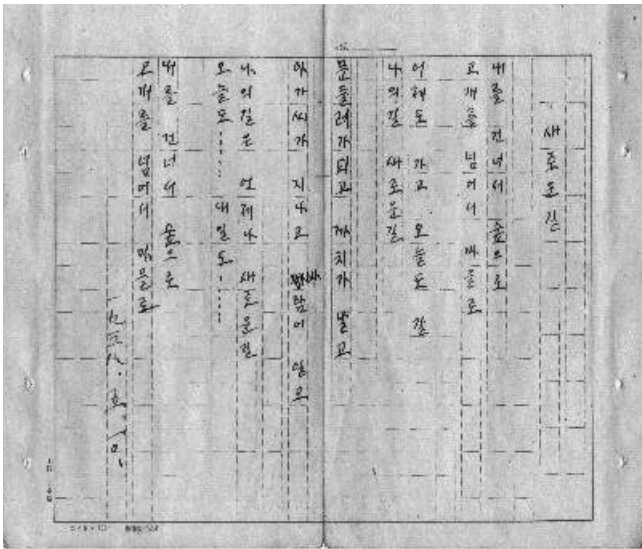 새로운길
내를 건너서 숲으로
고개를 넘어서 마을로
어제도 가고 오늘도 갈
나의길 새로운길
문들레가 피고 까치가 날고
아가씨가 지나고 바람이 일고
나의길은 언제나 새로운길
오늘도…… 내일도……
내를 건너서 숲으로
고개를 넘어서 마을로
一九三八·五·一〇.